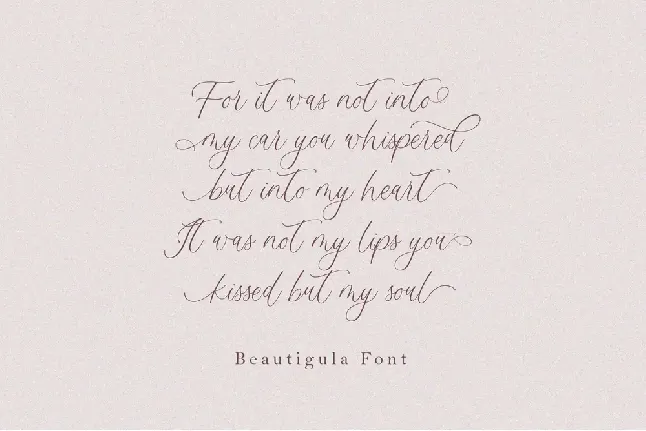 For it was not into
my car you whispered
but into my heart
It was not my lips you
kissed but my soul
Beautigula Font